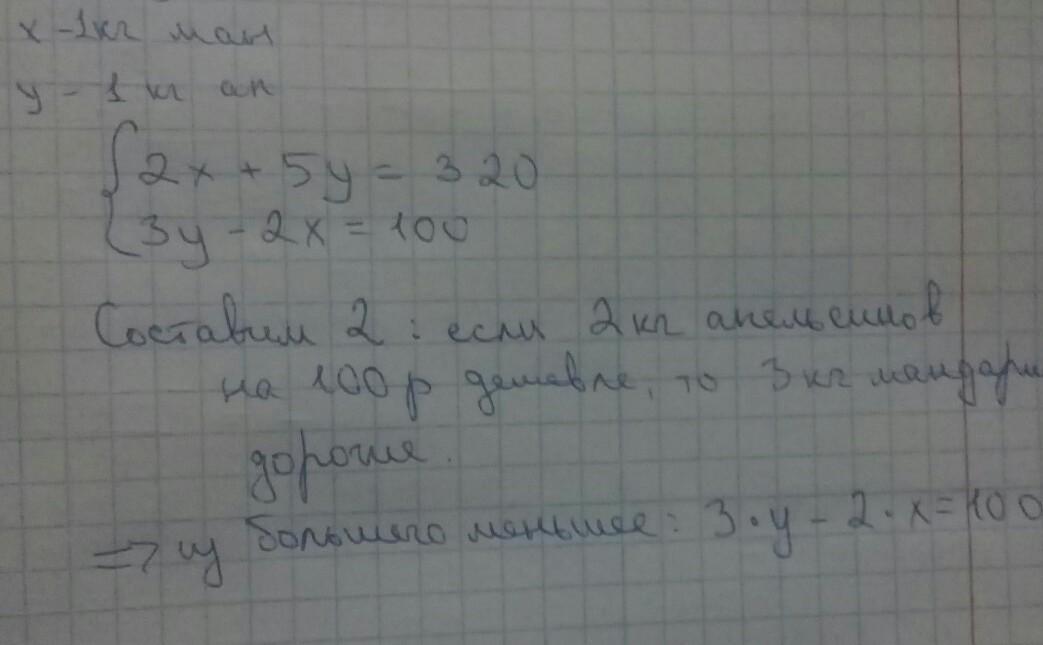 x - 1кг ман
y - 1 кг ап
2x + 5y = 320
3y - 2x = 100
Составим 2: если 2кг апельсинов
на 100р дешевле, то 3кг мандари
дороже.
=> из большего меньшее: 3·y - 2·x=100